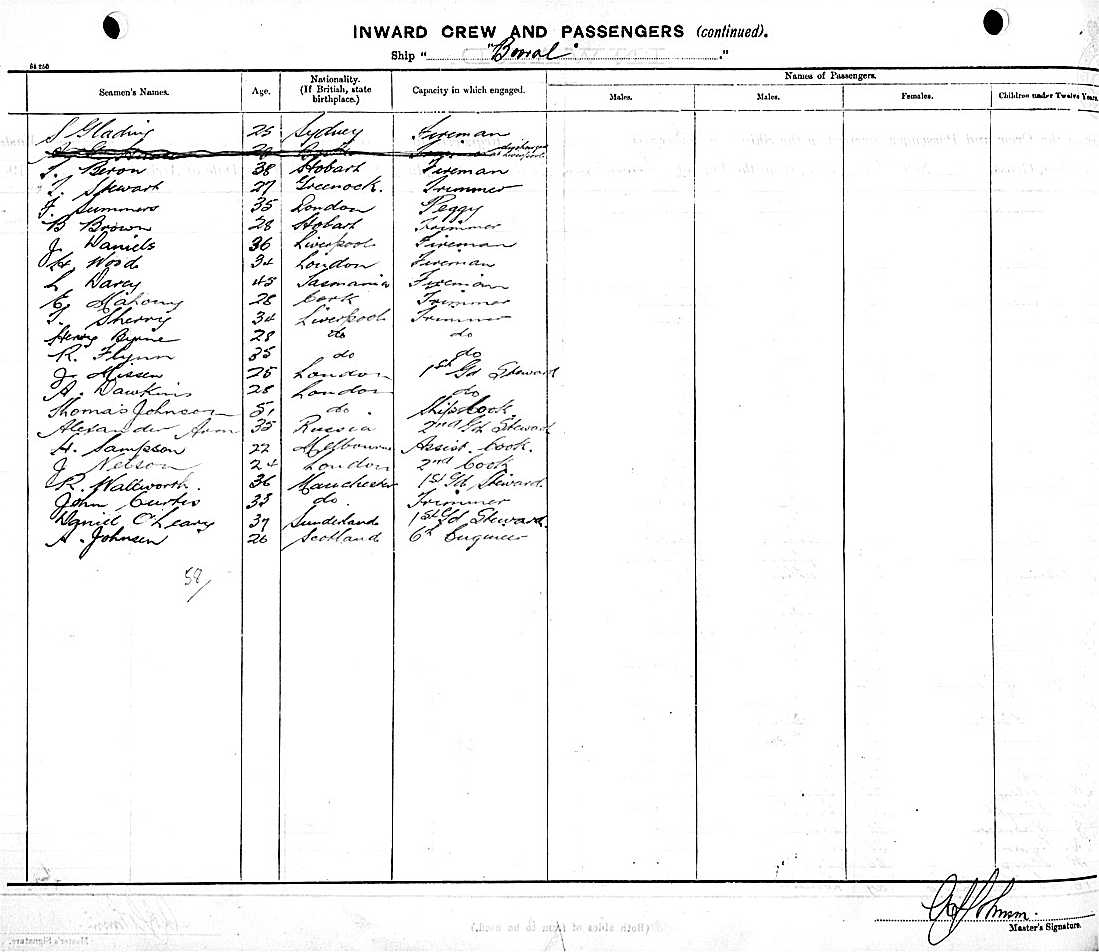 INWARD CREW AND PASSENGERS (continued).
Ship " "Boral" "
Seamen's Names. Age. Nationality. (If British, state birthplace.) Capacity in which engaged. Names of Passengers.
Males. Males. Females. Children under Twelve Years.
S Glading 25 Sydney Fireman
discharged at Liverpool
T. Beron 38 Hobart Fireman
T. Stewart 27 Greenock. Trimmer
F. Summers 35 London Peggy
B Brown 28 Hobart Trimmer
J. Daniels 36 Liverpool Fireman
H. Wood 34 London Fireman
L Darcy 45 Tasmania Fireman
E. Mahony 28 Cork Trimmer
T. Sherry 34 Liverpool Trimmer
Henry Byrne 28 do do
R. Flynn 35 do do
J. Missen 25 London 1st Gd Steward
A. Dawkins 28 London do
Thomas Johnson 51 do. Ships Cook
Alexander Aron 35 Russia 2nd Gd Steward
H. Sampson 22 Melbourne Assist. Cook.
J Nelson 24 London 2nd Cook
R. Wallworth. 36 Manchester 1st Gd Steward
John Curtis 33 do. Trimmer
Daniel O'Leary 37 Sunderland 1st Gd Steward.
A. Johnsen 26 Scotland 6th Engineer
58/
Master's Signature.